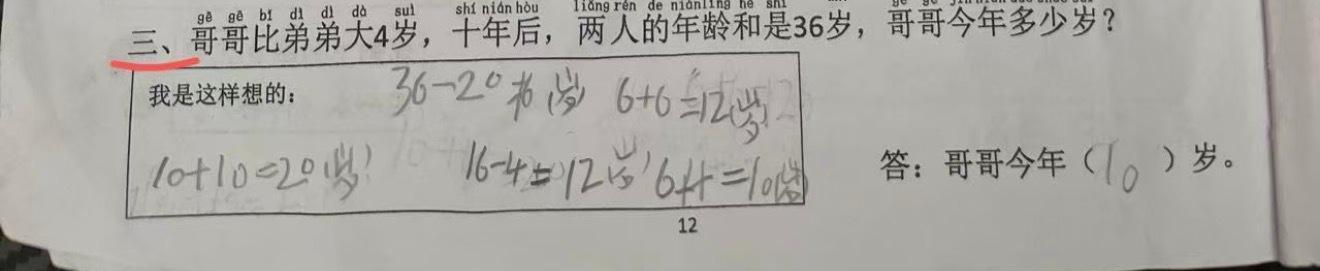 gē gē bǐ dì dì dà suì shí nián hòu liǎng rén de nián líng hé shì
三、哥哥比弟弟大4岁，十年后，两人的年龄和是36岁，哥哥今年多少岁？
我是这样想的： 36-20=16(岁) 6+6=12(岁)
10+10=20(岁) 16-4=12(岁) 6+4=10(岁)
答：哥哥今年（10）岁。
12